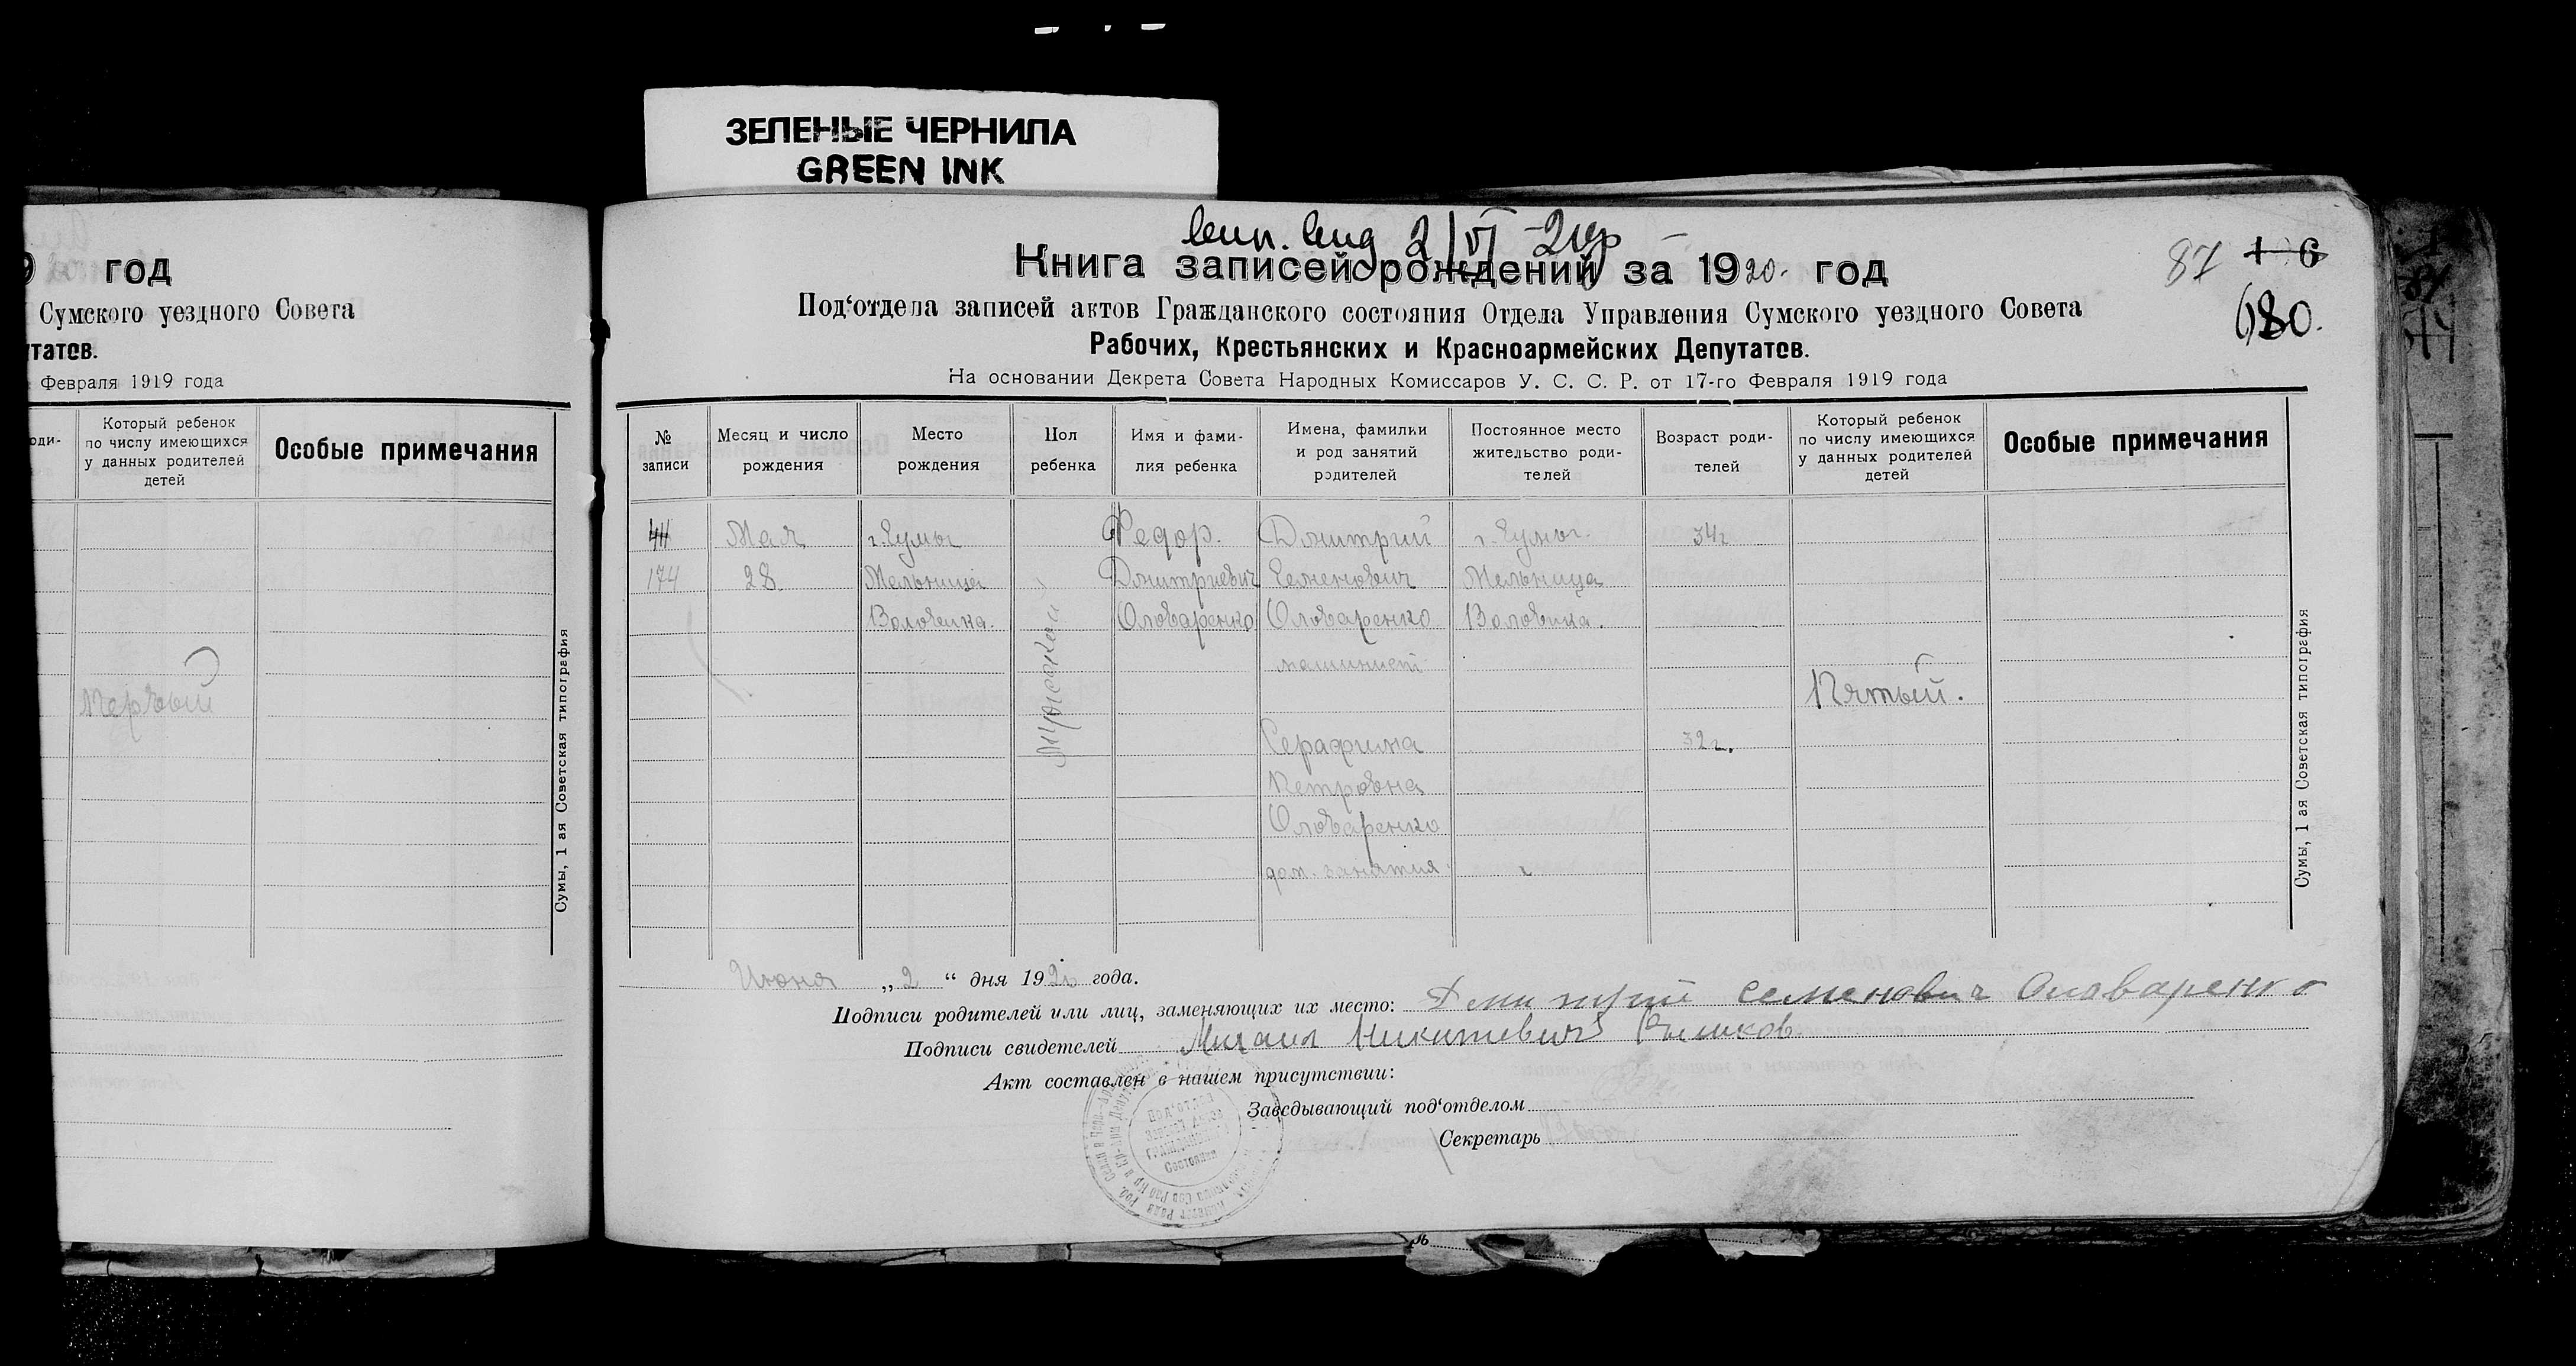 ЗЕЛЕНЫЕ ЧЕРНИЛА
GREEN INK
год
Сумского уездного Совета
Февраля 1919 года
Который ребенок
по числу имеющихся
у данных родителей
детей
Особые примечания
Первый
Сумы, 1 ая Советская типография
2/VI
Книга записей рождений за 1920. год
87
680.
Под‘отдела записей актов Гражданского состояния Отдела Управления Сумского уездного Совета
Рабочих, Крестьянских и Красноармейских Депутатов.
На основании Декрета Совета Народных Комиссаров У. С. С. Р. от 17-го Февраля 1919 года
№
записи
Месяц и число
рождения
Место
рождения
Пол
ребенка
Имя и фами-
лия ребенка
Имена, фамилии
и род занятий
родителей
Постоянное место
жительство роди-
телей
Возраст роди-
телей
Который ребенок
по числу имеющихся
у данных родителей
детей
Особые примечания
174
Мая
28
г. Сумы
Мельница
мужской
Федор.
Дмитриевич
Оловаренко
Дмитрий
Семенович
Оловаренко
машинист
Серафима
Петровна
Оловаренко
дом. занятия
г. Сумы
Мельница
34г
32г.
Пятый.
Сумы, 1 ая Советская типография
Июня „2“ дня 1920 года.
Подписи родителей или лиц, заменяющих их место: Дмитрий Семенович Оловаренко
Подписи свидетелей Михаил Никитевич
Акт составлен в нашем присутствии:
Заведывающий под‘отделом
Секретарь
Под‘отдел
Записи Актов
Гражданского
Состояния